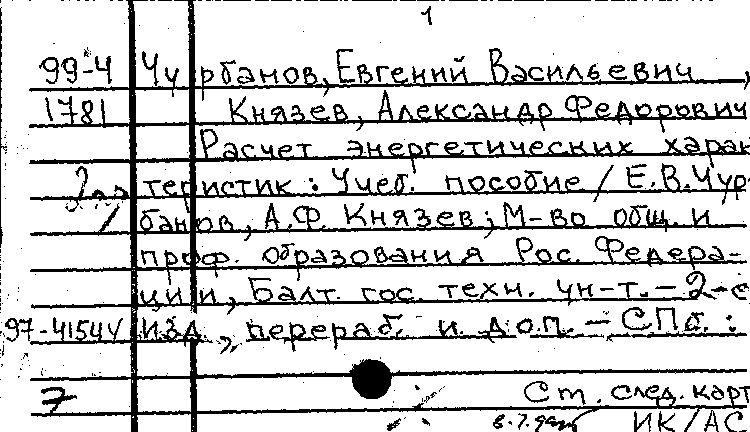 1
99-4 Чурбанов, Евгений Васильевич,
1781 Князев, Александр Федорович
Расчет энергетических харак
теристик: Учеб. пособие / Е.В.Чур-
банов, А.Ф. Князев; М-во общ. и
проф. образования Рос. Федера-
ции, Балт. гос. техн. ун-т. – 2-е
97-41544 изд., перераб. и доп. – СПб.:
7 Ст. след. карт
ИК/АС